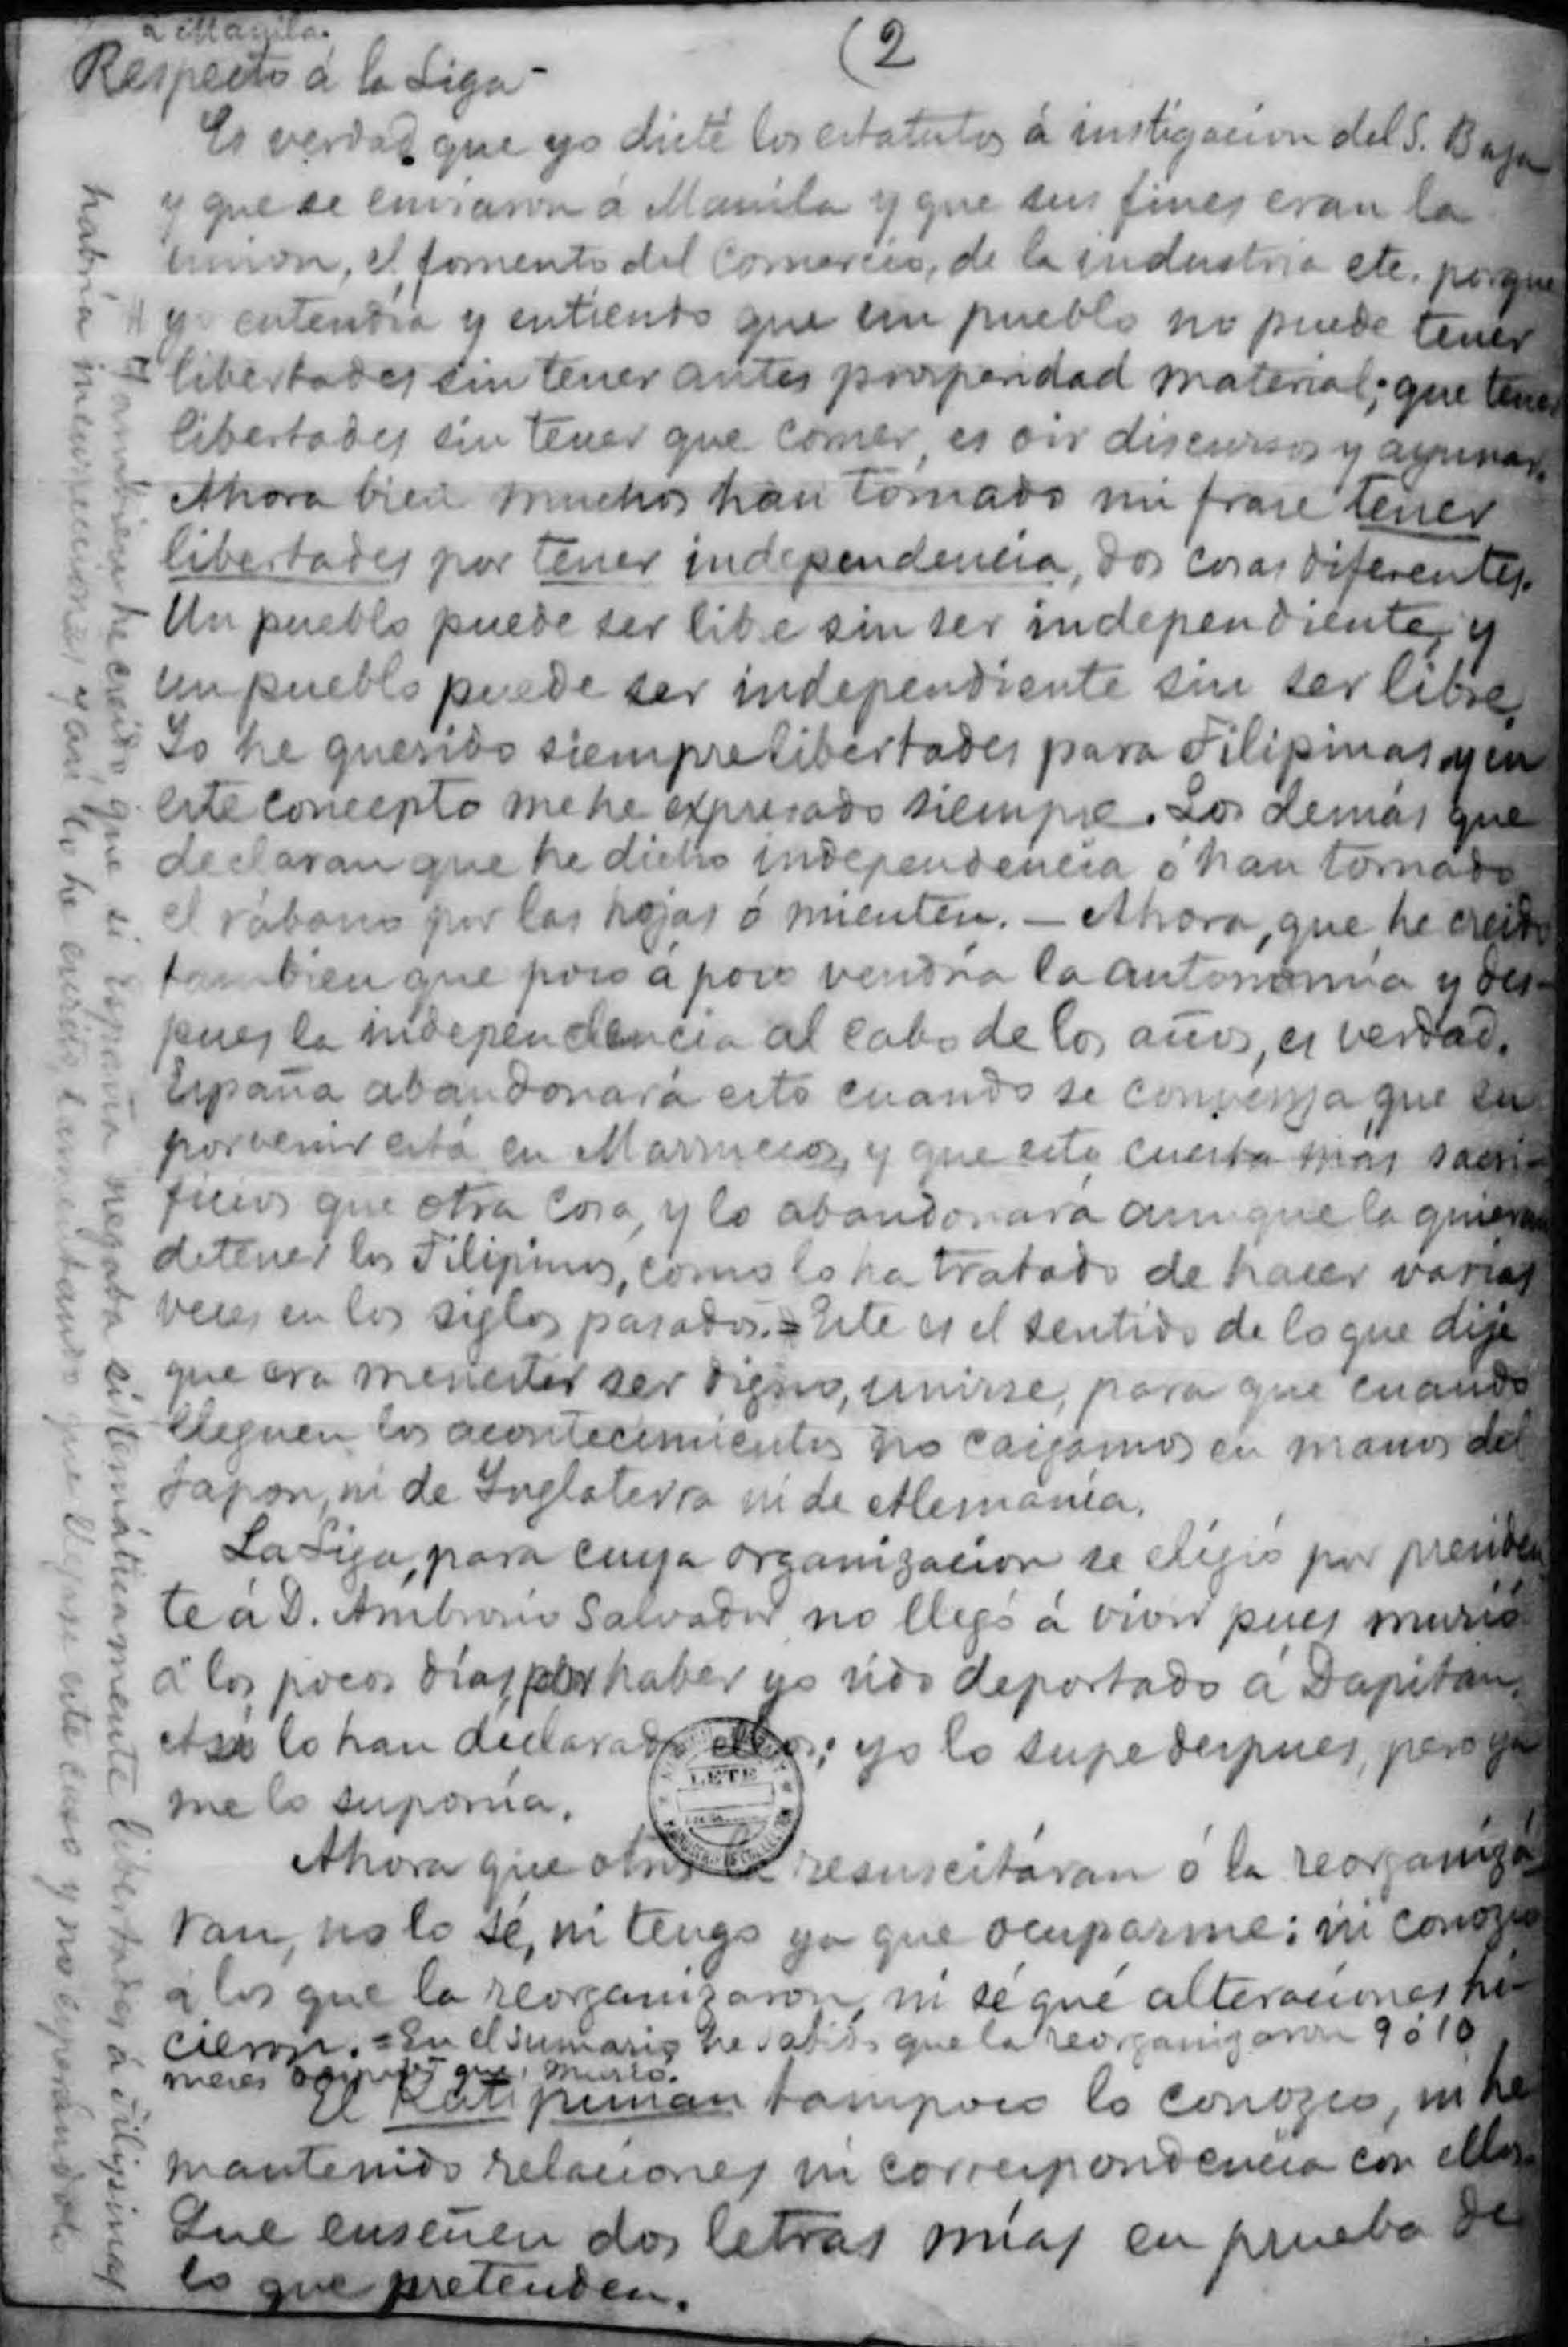 (2
a Manila.
Respecto á la Liga -
Es verdad que yo dicté los estatutos á instigacion del S. Basa
y que se enviaron á Manila y que sus fines eran la
union, el fomento del comercio, de la industria etc. porque
yo entendía y entiendo que un pueblo no puede tener
libertades sin tener antes prosperidad material; que tener
libertades sin tener que comer, es oir discursos y ayunar.
Ahora bien muchos han tomado mi frase tener
libertades por tener independencia, dos cosas diferentes.
Un pueblo puede ser libre sin ser independiente, y
un pueblo puede ser independiente sin ser libre.
Yo he querido siempre libertades para Filipinas y en
este concepto me he expresado siempre. Los demás que
declaran que he dicho independencia ó han tomado
el rábano por las hojas ó mienten. — Ahora, que he creido
tambien que poco á poco vendría la autonomía y des-
pues la independencia al cabo de los años, es verdad.
España abandonará esto cuando se convenza que su
porvenir está en Marruecos, y que esto cuesta más sacri-
ficios que otra cosa, y lo abandonará aunque la quieran
detener los Filipinos, como lo ha tratado de hacer varias
veces en los siglos pasados. = Este es el sentido de lo que dije
que era menester ser digno, unirse, para que cuando
lleguen los acontecimientos no caigamos en manos del
Japon, ni de Inglaterra ni de Alemania.
La Liga, para cuya organizacion se eligió por presiden
te á D. Ambrosio Salvador no llegó á vivir pues murió
á los pocos días por haber yo sido deportado á Dapitan.
Asi lo han declarado ellos; yo lo supe despues, pero ya
me lo suponía.
LETE
Ahora que otros la resuscitáran ó la reorganizá
ran, no lo sé, ni tengo ya que ocuparme: ni conozco
á los que la reorganizaron, ni sé qué alteraciones hi-
cieron. = En el sumario he sabido que la reorganizaron 9 ó 10
meses despues que murió.
El Katipunan tampoco lo conozco, ni he
mantenido relaciones ni correspondencia con ellos.
Que enseñen dos letras mías en prueba de
lo que pretenden.
# Tambien he creido que si España negaba sistemáticamente libertades á Filipinas
habría insurrecciones y así lo he escrito, lamentando que llegase este caso y no esperándolo